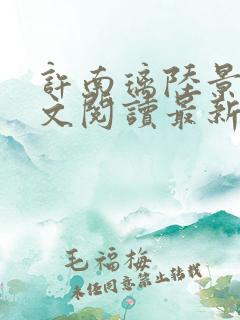 許南璃陸景
文閱讀最新
毛福梅
未经同意禁止转载